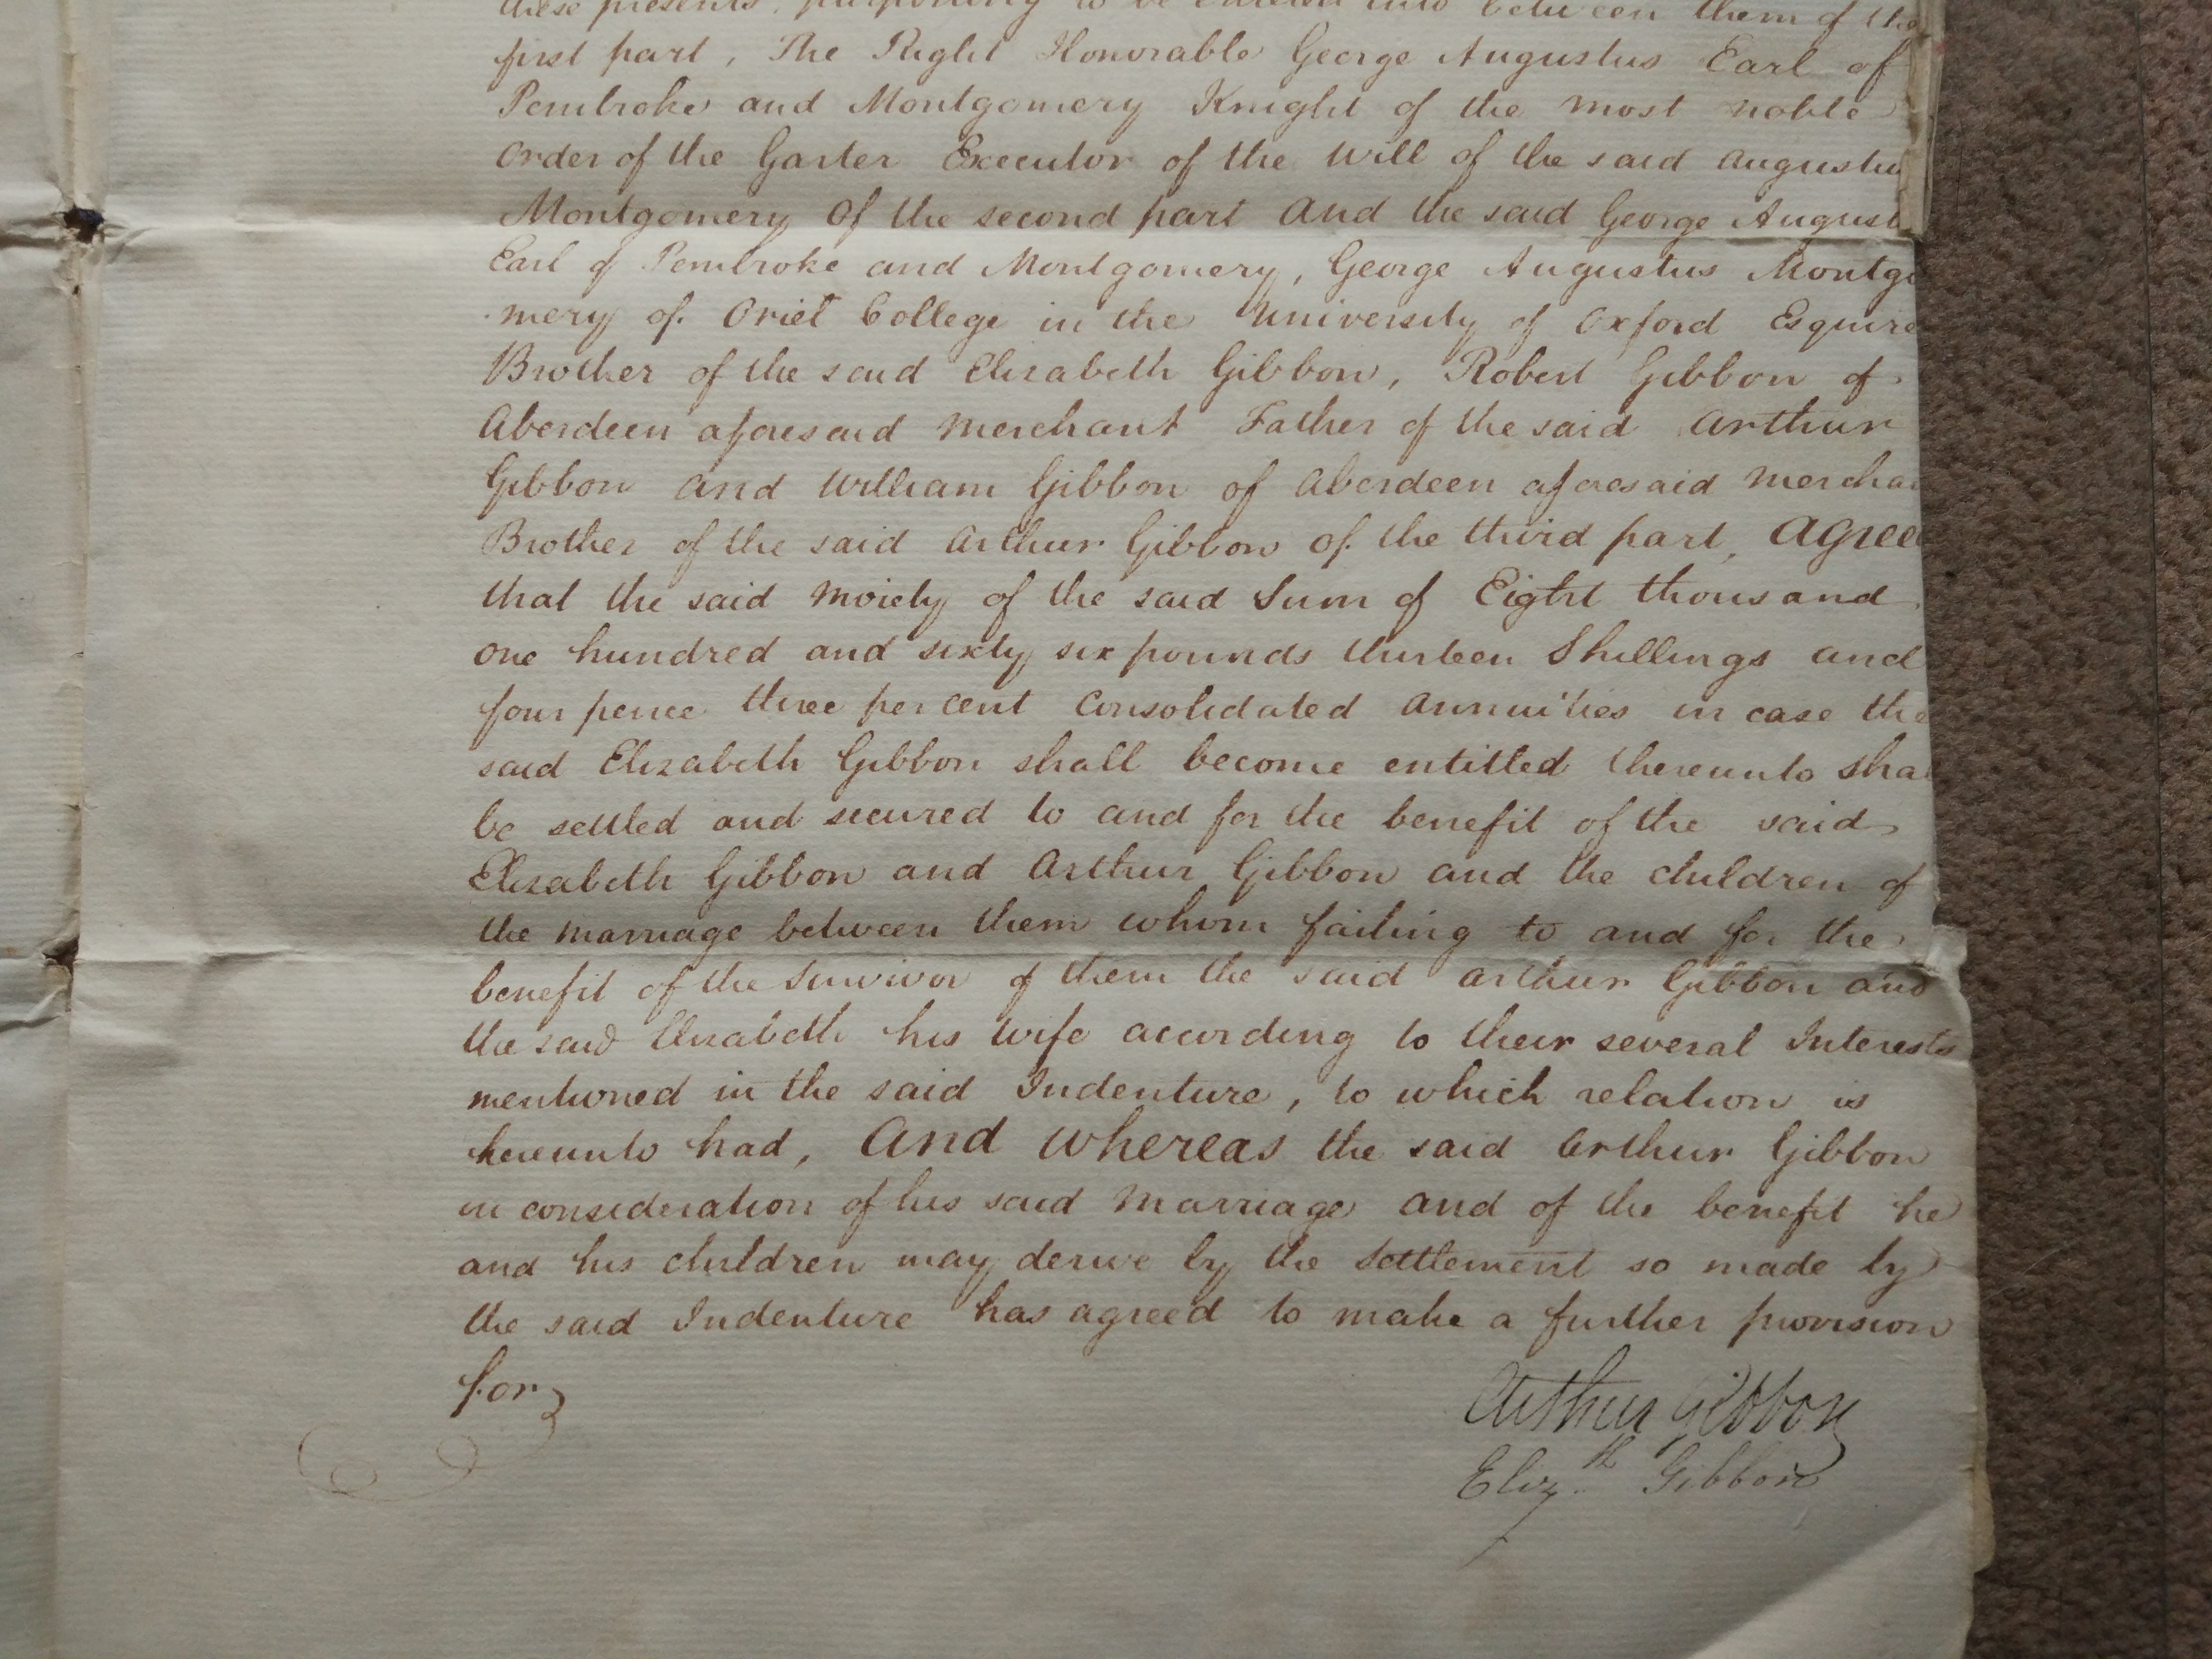 these presents, purporting to be entered into between them of the
first part, The Right Honorable George Augustus Earl of
Pembroke and Montgomery Knight of the most noble
Order of the Garter Executor of the Will of the said Augustu
Montgomery Of the second part And the said George August
Earl of Pembroke and Montgomery, George Augustus Montgo
mery of Oriel College in the University of Oxford Esquire
Brother of the said Elizabeth Gibbon, Robert Gibbon of
Aberdeen aforesaid Merchant Father of the said Arthur
Gibbon and William Gibbon of Aberdeen aforesaid Merchan
Brother of the said Arthur Gibbon of the third part, Agree
that the said Moiety of the said Sum of Eight thousand
one hundred and sixty six pounds thirteen Shillings and
four pence three per cent Consolidated Annuities in case the
said Elizabeth Gibbon shall become entitled thereunto shal
be settled and secured to and for the benefit of the said
Elizabeth Gibbon and Arthur Gibbon and the children of
the marriage between them whom failing to and for the
benefit of the Survivor of them the said Arthur Gibbon and
the said Elizabeth his Wife according to their several Interests
mentioned in the said Indenture, to which relation is
hereunto had, And Whereas the said Arthur Gibbon
in consideration of his said Marriage and of the benefit he
and his children may derive by the Settlement so made by
the said Indenture has agreed to make a further provision
for
Arthur Gibbon
Eliz.th Gibbon